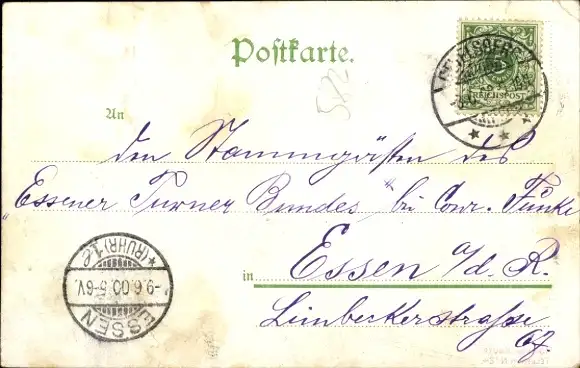 Postkarte.
REICHSPOST
582
An
den Stammgästen des
„Essener Turner Bundes" bei Conr. Funke
in Essen a/d. R.
Limbeckerstraße
ESSEN
*(RUHR)1.e
-9.6.00.5-6V.